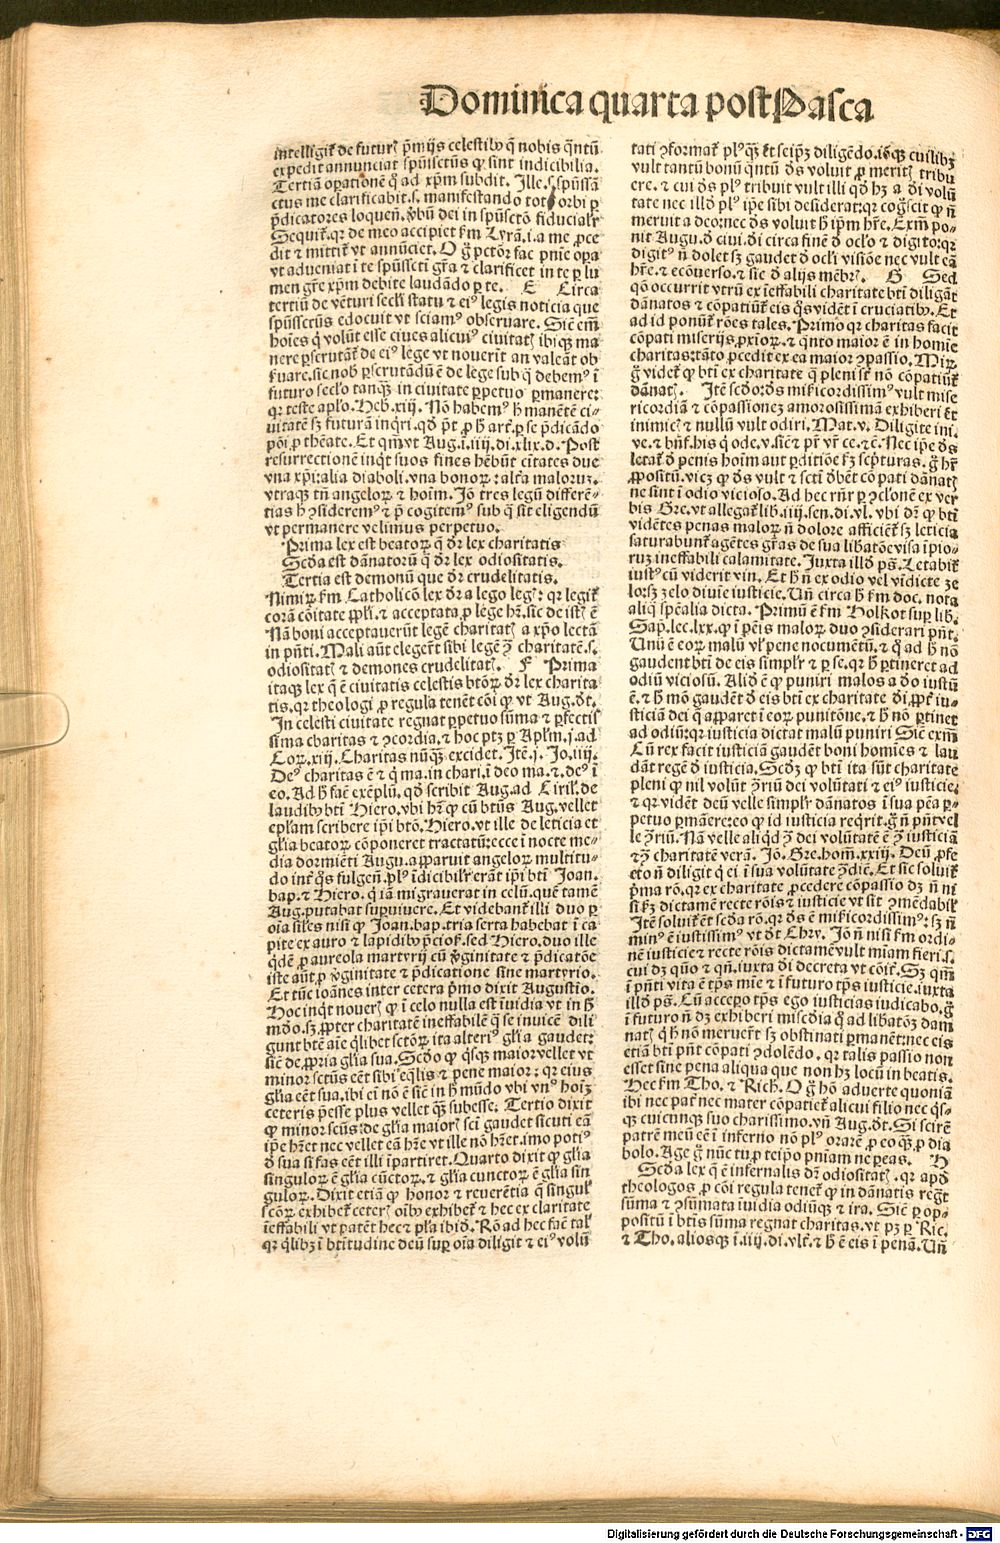 Dominica quarta post Pasca
intelligit̄ de futurꝭ p̄mijs celestibꝰ q̄ nobis q̄ntū
expedit annunciat spūssctūs ꝙ sint indicibilia.
Tertiā oꝑationē q̄ ad xp̄m subdit. Ille .s. spūssā
ctus me clarificabit .s. manifestando toti orbi ꝑ
p̄dicatores loquen̄. v̓bū dei in spūsctō fiducialr̄
Sequit̄. qr de meo accipiet ẜm Lyrā. i. a me ꝓce
dit ⁊ mittit̄ vt annūciet. O g̊ pctōr fac pn̄ie oꝑa
vt adueniat ī te spūssctī gr̄a ⁊ clarificet in te ꝑ lu
men gr̄e xp̄m debite laudādo ꝑ te. E Circa
tertiū de vēturi secĺi statu ⁊ eiꝰ legis noticia que
spūssctūs edocuit vt sciamꝰ obseruare. Sic̄ em̄
hoīes q̄ volūt esse ciues alicuiꝰ ciuitatꝭ ibiqꝫ ma
nere ꝑscrutāt̄ de eiꝰ lege vt nouerīt an valeāt ob
ẜuare. sic nob̄ ꝑscrutādū ē de lege sub q̄ debemꝰ ī
futuro secĺo tanqꝫ in ciuitate ꝑpetuo ꝑmanere:
qr teste apĺo. Heb. xiij. Nō habemꝰ h̄ manētē ci-
uitatē sꝫ futurā inq̄ri. qd̓ pt̄ ꝓ h̄ art̄. ꝑ se p̄dicādo
pōi ꝓ thēate. Et qm̄ vt Aug. ī. iiij. di. xlix. d. Post
resurrectionē inq̄t suos fines hēbūt ciuitates due
vna xp̄i: alia diaboli. vna bonoꝝ: alt̄a maloruꝫ.
vtraqꝫ tn̄ angeloꝝ ⁊ hoīm. Jō tres legū differē-
tias h̄ ꝯsideremꝰ ⁊ p̄ cogitemꝰ sub q̄ sit eligendū
vt permanere velimus perpetuo.
Prima lex est beatoꝝ q̄ dr̄ lex charitatis
Scd̓a est dānatorū q̄ dr̄ lex odiositatis.
Tertia est demonū que dr̄ crudelitatis.
Nimiꝝ ẜm Catholicō lex dr̄ a lego legꝭ: qr legit̄
corā cōitate ppĺi. ⁊ acceptata ꝓ lege hr̄. sic de istꝭ ē
Nā boni acceptauerūt legē charitatꝭ a xp̄o lectā
in pn̄ti. Mali aūt elegerūt sibi legē ꝯ̄ charitatē .s.
odiositatꝭ ⁊ demones crudelitatꝭ. F Prima
itaqꝫ lex q̄ ē ciuitatis celestis btōꝝ dr̄ lex charita
tis. qr theologi ꝓ regula tenēt cōi ꝙ vt Aug. d̓t.
In celesti ciuitate regnat ꝑpetuo sūma ⁊ ꝑfectis
sima charitas ⁊ ꝯcordia. ⁊ hoc ptꝫ ꝑ Apĺm. j. ad
Corꝝ. xiij. Charitas nūqꝫ excidet. Jtē. j. Jo. iiij.
Deꝰ charitas ē ⁊ q̄ ma. in chari. ī deo ma. ⁊. deꝰ ī
eo. Ad h̄ faē exēplū. qd̓ scribit Aug. ad Ciriĺ. de
laudibꝰ btī Hiero. vbi hr̄ ꝙ cū btūs Aug. vellet
epĺam scribere ip̄i btō. Hiero. vt ille de leticia et
gĺia beatoꝝ cōponeret tractatū: ecce ī nocte me-
dia dormiēti Augu. apparuit angeloꝝ multitu-
do int̄ q̄s fulgen̄. plꝰ īdicibilr̄ erāt ip̄i btī Joan.
bap. ⁊ Hiero. q̄ iā migrauerat in celū. quē tamē
Aug. putabat suꝑuiuere. Et videbant̄ illi duo ꝑ
oīa siĺes nisi ꝙ Joan. bap. tria serta habebat ī ca
pite ex auro ⁊ lapidibꝰ p̄ciosꝭ. sed Hiero. duo ille
q̄dē ꝓ aureola martyrij cū v̓ginitate ⁊ p̄dicatōe
iste aūt ꝓ v̓ginitate ⁊ p̄dicatione sine martyrio.
Et tūc ioānes inter cetera p̄mo dixit Augustīo.
Hoc inq̄t nouerꝭ ꝙ ī celo nulla est īuidia vt in h̄
mūdo. sꝫ ꝓpter charitatē ineffabilē q̄ se inuicē dili
gunt btē aīe q̄libet sctōꝝ ita alteriꝰ gĺia gaudet:
sic̄ de ꝓpria gĺia sua. Scd̓o ꝙ q̄sqꝫ maior vellet vt
minor sctūs eēt sibi eq̄lis ⁊ pene maior: qr eius
gĺia eēt sua. ibi em̄ nō ē sic̄ in h̄ mūdo vbi vnꝰ hoīꝫ
ceteris p̄esse plus vellet qꝫ subesse. Tertio dixit
ꝙ minor sctūs de gĺia maiorꝭ sctī gaudet sicuti eā
ip̄e hr̄et nec vellet eā hr̄e vt ille nō hr̄et. imo potiꝰ
d̓ sua si fas eēt illi īpartiret. Quarto dixit ꝙ gĺia
singuloꝝ ē gĺia cūctoꝝ. ⁊ gĺia cunctoꝝ ē gĺia sin
guloꝝ. Dixit etiā ꝙ honor ⁊ reuerētia q̄ singulꝭ
sctōꝝ exhibet̄ ceterꝭ oībꝰ exhibet̄ ⁊ hec ex claritate
ineffabili vt patēt hec ⁊ pĺa ibid̓. Rō ad hec faē talꝭ
qr q̄libꝫ ī btītudine deū suꝑ oīa diligit ⁊ eiꝰ volū
tati ꝯformat̄ plꝰqꝫ ēt seip̄ꝫ diligēdo. ideoqꝫ cuilibꝫ
vult tantū bonū q̄ntū d̓s voluit ꝓ meritꝭ tribu
ere. ⁊ cui d̓s plꝰ tribuit vult illi qd̓ hꝫ a d̓i volū
tate nec illd̓ plꝰ ip̄e sibi desiderat: qr cog̓scit ꝙ n̄
meruit a deo: nec d̓s voluit h̄ ip̄m hr̄e. Exm̄ po-
nit Augu. d̓ ciui. d̓i circa finē d̓ ocĺo ⁊ digito: qr
digitꝰ n̄ dolet sꝫ gaudet d̓ ocĺi visiōe nec vult eā
hr̄e. ⁊ ecōuerso. ⁊ sic d̓ alijs mēbrꝭ. G Sed
qō occurrit vtrū ex īeffabili charitate btī diligāt
dānatos ⁊ cōpatiūt̄ eis q̄s vidēt ī cruciatibꝰ. Et
ad id ponūt̄ rōes tales. Primo qr charitas facit
cōpati miserijs. pxīoꝝ. ⁊ q̄nto maior ē in homīe
charitas: tāto ꝓcedit ex ea maior ꝯpassio. Miꝝ
g̊ videt̄ ꝙ btī ex charitate q̄ pleni st̄ nō cōpatiūt̄
dānatꝭ. Jtē scd̓o: d̓s miẜicordissimꝰ vult mise
ricordiā ⁊ cōpassioneꝫ amorosissimā exhiberi ēt
inimicꝭ ⁊ nullū vult odiri. Mat. v. Diligite ini.
ve. ⁊ bn̄f. his q̄ ode. v. sic̄ ⁊ pr̄ vr̄ ce. ⁊ c̄. Nec ip̄e d̓s
letat̄ d̓ penis hoīm aut ꝑditiōe ẜꝫ scpt̄uras. g̊ hr̄
ꝓpositū. vicꝫ ꝙ d̓s vult ⁊ sctī d̓bēt cōpati dānatꝭ
ne sint ī odio vicioso. Ad hec rn̄r ꝑ ꝯclonē ex ver
bis Gre. vt allegat̄ lib. iiij. sen. di. vĺ. vbi dr̄ ꝙ btī
vidētes penas maloꝝ n̄ dolore afficiēt̄ sꝫ leticia
saturabunt̄ agētes gr̄as de sua libatōe visa īpio-
ruꝫ ineffabili calamitate. Juxta illd̓ ps̄. Letabit̄
iustꝰ cū viderit vin. Et h̄ n̄ ex odio vel vīdicte ze
lo: sꝫ zelo diuīe iusticie. Un̄ circa h̄ ẜm doc. nota
aliq̄ spēalia dicta. Primū ē ẜm Holkot suꝑ lib.
Sap̄. lec. lxx. ꝙ ī penis maloꝝ duo ꝯsiderari pn̄t.
Unū ē eoꝝ malū vĺ pene nocumētū. ⁊ q̄ ad h̄ nō
gaudent btī de eis simplr̄ ⁊ ꝑ se. qr h̄ ꝑtineret ad
odiū viciosū. Alid̓ ē ꝙ puniri malos a d̓o iustū
ē. ⁊ h̄ mō gaudēt d̓ eis btī ex charitate d̓i ꝓpt̄ iu-
sticiā dei q̄ apparet ī eoꝝ punitōne. ⁊ h̄ nō ꝑtinet
ad odiū: qr iusticia dictat malū puniri Sic̄ exm̄
Cū rex facit iusticiā gaudēt boni homies ⁊ lau
dāt regē d̓ iusticia. Scd̓ꝫ ꝙ btī ita sūt charitate
pleni ꝙ nil volūt ꝯriū dei volūtati ⁊ eiꝰ iusticie:
⁊ qr vidēt deū velle simplr̄ dānatos ī sua pēa ꝑ-
petuo ꝑmāere: eo ꝙ id iusticia reqrit. g̊ n̄ pn̄t vel
le ꝯriū. Nā velle aliqd̓ ꝯ̄ dei volūtatē ē ꝯ̄ iusticiā
⁊ ꝯ̄ charitatē verā. Jō. Gre. hom̄. xxiij. Deū ꝑfe
cto n̄ diligit q̄ ei ī sua volūtate ꝯdic̄. Et sic soluit̄
p̄ma rō. qr ex charitate ꝓcedere cōpassio dꝫ n̄ ni
si ẜꝫ dictamē recte rōis ⁊ iusticie vt sit ꝯmēdabilꝭ
Jtē soluit̄ ēt scd̓a rō. qr d̓s ē miẜicordissimꝰ: sꝫ n̄
minꝰ ē iustissimꝰ vt d̓t Chry. Jō n̄ nisi ẜm ordi-
nē iusticie ⁊ recte rōis dictamē vult miam fieri .s.
cui dꝫ quo ⁊ qn̄. iuxta d̓i decreta vt cōit̄. Sꝫ qm̄
ī pn̄ti vita ē tp̄s mie ⁊ ī futuro tp̄s iusticie. iuxta
illd̓ ps̄. Cū accepero tp̄s ego iusticias iudicabo. g̊
ī futuro n̄ dꝫ exhiberi misc̄dia q̄ ad libatōꝫ dam
natꝭ q̄ h̄ nō meruerūt sꝫ obstinati ꝑmanēt: nec eis
etiā btī pn̄t cōpati ꝯdolēdo. qr talis passio non
esset sine pena aliqua que non hꝫ locū in beatis.
Hec ẜm Tho. ⁊ Rich. O g̊ hō aduerte quoniā
ibi nec pat̄ nec mater cōpatiet̄ alicui filio nec q̄s-
qꝫ cuicunqꝫ suo charissimo. vn̄ Aug. d̓t. Si scirē
patrē meū eē ī inferno nō plꝰ orarē ꝓ eo qꝫ ꝓ dia
bolo. Age g̊ nūc tu ꝓ teip̄o pn̄iam ne ꝑeas. H
Scd̓a lex q̄ ē infernalis dr̄ odiositatꝭ. qr apd̓
theologos ꝓ cōi regula tenet̄ ꝙ in dānatis regt̄
sūma ⁊ ꝯsūmata īuidia odiūqꝫ ⁊ ira. Sic̄ ꝑ op-
positū ī btīs sūma regnat charitas. vt pꝫ ꝑ Ric.
⁊ Tho. aliosqꝫ ī. iiij. di. vlt̄. ⁊ h̄ ē eis ī penā. Un̄
Digitalisierung gefördert durch die Deutsche Forschungsgemeinschaft - DFG